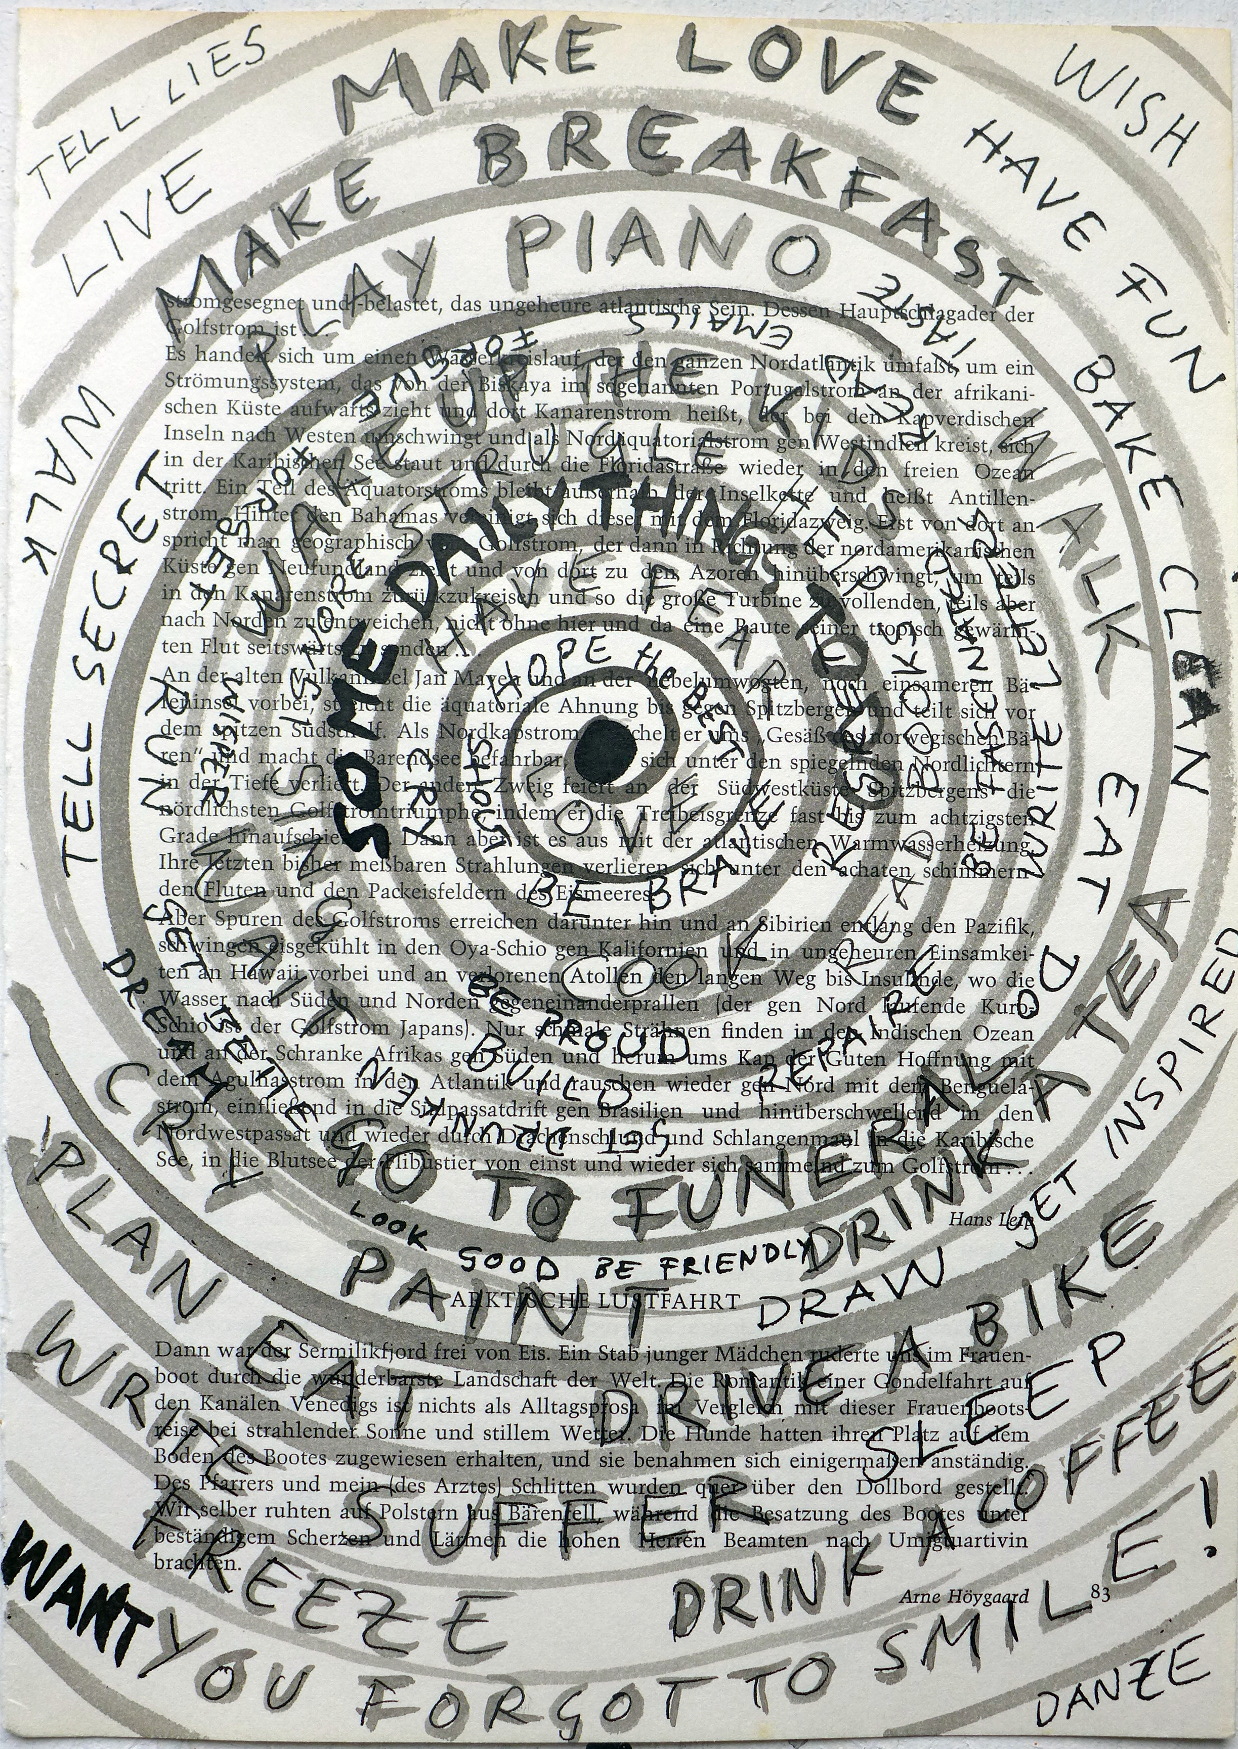 TELL LIES
MAKE LOVE
WISH
LIVE
MAKE BREAKFAST
HAVE FUN
PLAY PIANO
BAKE CLEAN
TASTE
EMAILS
WAKE UP THE KID
WALK
WALK
STRUGGLE
SOME DAILY THINGS TO DO
HAVE FEAR
HOPE the BEST
LOVE
TELL SECRET
RUN
WHISPER
HOPE
SING
CRY
SHOP
BE BRAVE
COOK
BE PROUD
BUILD
REPAIR
READ BOOKS
BE FASCINATED
WRITE LETTERS
EAT
DO
WAIT
GET DRUNKEN
DREAM
CRY
GO TO FUNERAL
LOOK GOOD BE FRIENDLY
DRINK A TEA
GET INSPIRED
PAINT
DRAW
PLAN
EAT
DRIVE A BIKE
SLEEP
WRITE
SUFFER
DRINK A COFFEE
FREEZE
WANT
YOU FORGOT TO SMILE!
DANZE
stromgesegnet und -belastet, das ungeheure atlantische Sein. Dessen Hauptschlagader der
Golfstrom ist ...
Es handelt sich um einen Wasserkreislauf, der den ganzen Nordatlantik umfaßt, um ein
Strömungssystem, das von der Biskaya im sogenannten Portugalstrom an der afrikani-
schen Küste aufwärts zieht und dort Kanarenstrom heißt, der bei den Kapverdischen
Inseln nach Westen umschwingt und als Nordäquatorialstrom gen Westindien kreist, sich
in der Karibischen See staut und durch die Floridastraße wieder in den freien Ozean
tritt. Ein Teil des Äquatorstroms bleibt außerhalb der Inselkette und heißt Antillen-
strom. Hinter den Bahamas vereinigt sich dieser mit dem Floridazweig. Erst von dort an
spricht man geographisch vom Golfstrom, der dann in Richtung der nordamerikanischen
Küste gen Neufundland zieht und von dort zu den Azoren hinüberschwingt, um teils
in den Kanarenstrom zurückzukreisen und so die große Turbine zu vollenden, teils aber
nach Norden zu entweichen, nicht ohne hier und da eine Raute seiner tropisch gewärm-
ten Flut seitswärts zu senden ...
An der alten Vulkaninsel Jan Mayen und an der nebelumwogten, noch einsameren Bä-
reninsel vorbei, streicht die äquatoriale Ahnung bis gegen Spitzbergen und teilt sich vor
dem spitzen Südschelf. Als Nordkapstrom schmeichelt er ums „Gesäß des norwegischen Bä-
ren“ und macht die Barendsee befahrbar, sich unter den spiegelnden Nordlichtern
in der Tiefe verliert. Der andere Zweig feiert an der Südwestküste Spitzbergens die
nördlichsten Golfstromtriumphe, indem er die Treibeisgrenze fast bis zum achtzigsten
Grade hinaufschiebt. Dann aber ist es aus mit der atlantischen Warmwasserheizung.
Ihre letzten bisher meßbaren Strahlungen verlieren sich unter den achaten schimmern-
den Fluten und den Packeisfeldern des Eismeeres.
Aber Spuren des Golfstroms erreichen darunter hin und an Sibirien entlang den Pazifik,
schwingen eisgekühlt in den Oya-Schio gen Kalifornien und in ungeheuren Einsamkei-
ten an Hawaii vorbei und an verlorenen Atollen den langen Weg bis Insulinde, wo die
Wasser nach Süden und Norden gegeneinanderprallen (der gen Nord laufende Kuro-
Schio ist der Golfstrom Japans). Nur schmale Strähnen finden in den Indischen Ozean
und an der Schranke Afrikas gen Süden und herum ums Kap der Guten Hoffnung mit
dem Agulhasstrom in den Atlantik und rauschen wieder gen Nord mit dem Benguela-
strom, einfließend in die Südpassatdrift gen Brasilien und hinüberschwellend in den
Nordwestpassat und wieder durch Drachenschlund und Schlangenmaul in die Karibische
See, in die Blutsee der Flibustier von einst und wieder sich sammelnd zum Golfstrom ...
Hans Leip
ARKTISCHE LUSTFAHRT
Dann war der Sermilikfjord frei von Eis. Ein Stab junger Mädchen ruderte uns im Frauen-
boot durch die wunderbarste Landschaft der Welt. Die Romantik einer Gondelfahrt auf
den Kanälen Venedigs ist nichts als Alltagsprosa im Vergleich mit dieser Frauenboots-
reise bei strahlender Sonne und stillem Wetter. Die Hunde hatten ihren Platz auf dem
Boden des Bootes zugewiesen erhalten, und sie benahmen sich einigermaßen anständig.
Des Pfarrers und mein (des Arztes) Schlitten wurden quer über den Dollbord gestellt.
Wir selber ruhten auf Polstern aus Bärenfell, während die Besatzung des Bootes unter
beständigem Scherzen und Lärmen die hohen Herren Beamten nach Umigtuartivin
brachten.
Arne Höygaard
83